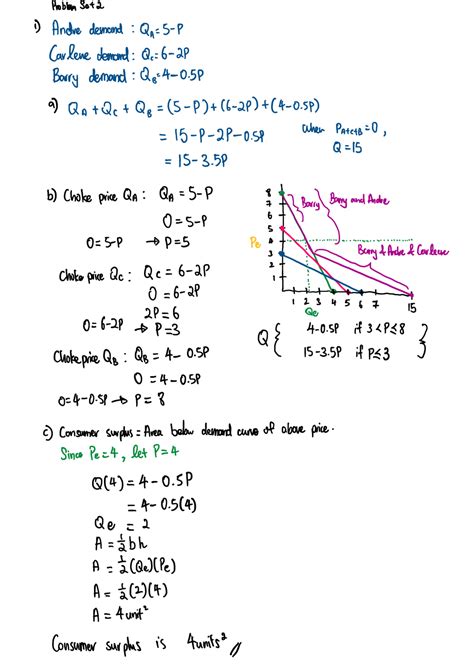 Problem Set 2
1) Andre demand : QA = 5-P
Carlene demand : Qc = 6-2P
Barry demand : QB = 4-0.5P
a) QA + Qc + QB = (5-P)+(6-2P)+(4-0.5P)
= 15-P-2P-0.5P
= 15-3.5P
when PA+C+B = 0,
Q=15
b) Choke price QA : QA = 5-P
0=5-P
0=5-P → P=5
Choke price Qc : Qc = 6-2P
0 = 6-2P
2P = 6
0=6-2P → P=3
Choke price QB : QB = 4- 0.5P
0 = 4-0.5P
0=4-0.5P → P = 8
8
7
6
5
4
3
2
1
Pe
Barry
Barry and Andre
Barry & Andre & Carlene
1 2 3 4 5 6 7 15
Qe
Q { 4-0.5P if 3<P≤8 }
15-3.5P if P≤3
c) Consumer surplus = Area below demand curve & above price.
Since Pe=4, let P=4
Q(4) = 4-0.5P
= 4-0.5(4)
Qe = 2
A = 1/2 bh
A = 1/2 (Qe)(Pe)
A = 1/2 (2)(4)
A = 4unit²
Consumer surplus is 4units² //